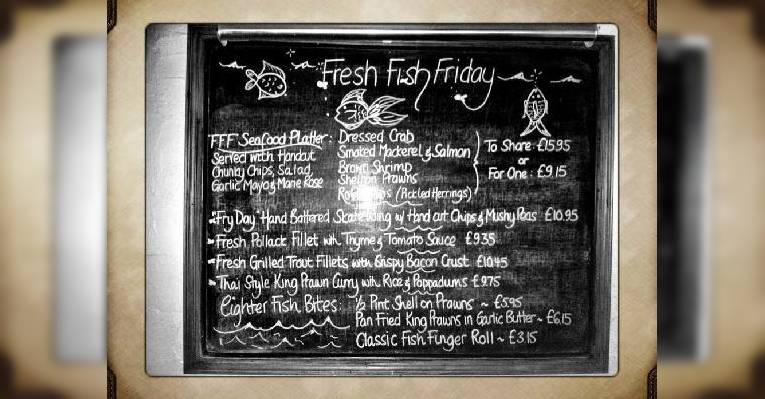 Fresh Fish Friday
FFF Seafood Platter:
Served with Handcut
Chunky Chips, Salad,
Garlic Mayo & Marie Rose
Dressed Crab
Smoked Mackerel & Salmon
Brown Shrimp
Shell on Prawns
(Pickled Herrings)
To Share £15.95
or
For One: £9.15
"Fry Day" Hand Battered Skate Wing w/ Hand cut Chips & Mushy Peas £10.95
Fresh Pollack Fillet with Thyme & Tomato Sauce £9.35
Fresh Grilled Trout Fillets with Crispy Bacon Crust £10.45
Thai Style King Prawn Curry with Rice & Poppadums £9.75
Lighter Fish Bites:
½ Pint Shell on Prawns ~ £5.95
Pan Fried King Prawns in Garlic Butter ~ £6.15
Classic Fish Finger Roll ~ £3.15